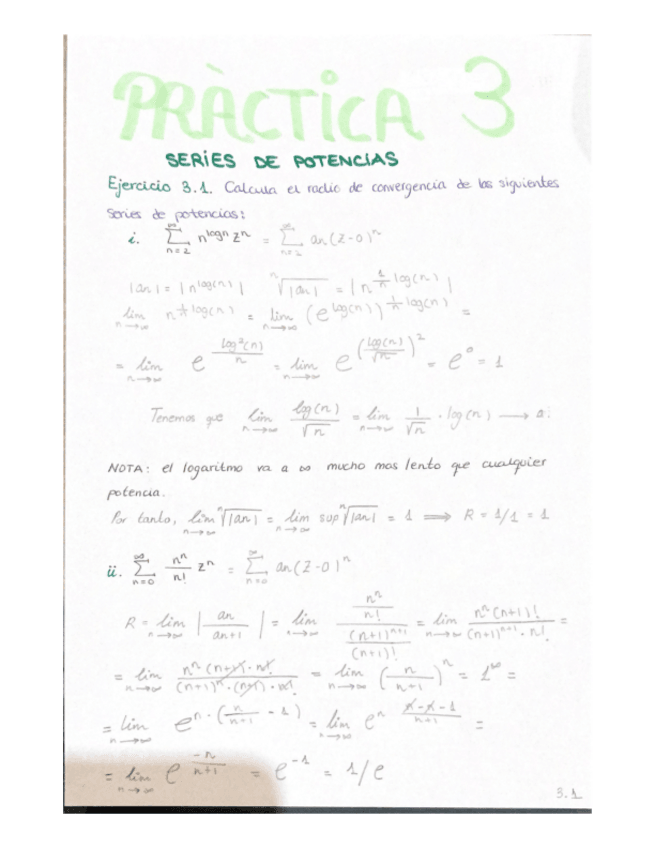 PRÀCTICA 3
SERIES DE POTENCIAS
Ejercicio 3.1. Calcula el radio de convergencia de las siguientes
series de potencias:
i. ∑_{n=2}^{∞} n^{log n} z^n = ∑_{n=2}^{∞} an(z-0)^n
|an| = |n^{log(n)}|   ⁿ√|an| = |n^{1/n log(n)}|
lim_{n→∞} n^{1/n log(n)} = lim_{n→∞} (e^{log(n)})^{1/n log(n)} =
= lim_{n→∞} e^{log²(n)/n} = lim_{n→∞} e^{(log(n)/√n)²} = e^0 = 1
Tenemos que lim_{n→∞} log(n)/√n = lim_{n→∞} 1/√n · log(n) ⟶
NOTA: el logaritmo va a ∞ mucho mas lento que cualquier
potencia.
Por tanto, lim_{n→∞} ⁿ√|an| = lim_{n→∞} sup ⁿ√|an| = 1 ⟹ R = 1/1 = 1
ii. ∑_{n=0}^{∞} n^n/n! z^n = ∑_{n=0}^{∞} an(z-0)^n
R = lim_{n→∞} |an/an+1| = lim_{n→∞} (n^n/n!)/((n+1)^{n+1}/(n+1)!) = lim_{n→∞} n^n(n+1)!/(n+1)^{n+1}·n! =
= lim_{n→∞} n^n(n+1)·n!/(n+1)^n·(n+1)·n! = lim_{n→∞} (n/n+1)^n = 1^∞ =
= lim_{n→∞} e^{n·(n/n+1 - 1)} = lim_{n→∞} e^{n n-n-1/n+1} =
= lim_{n→∞} e^{-n/n+1} = e^{-1} = 1/e
3.1